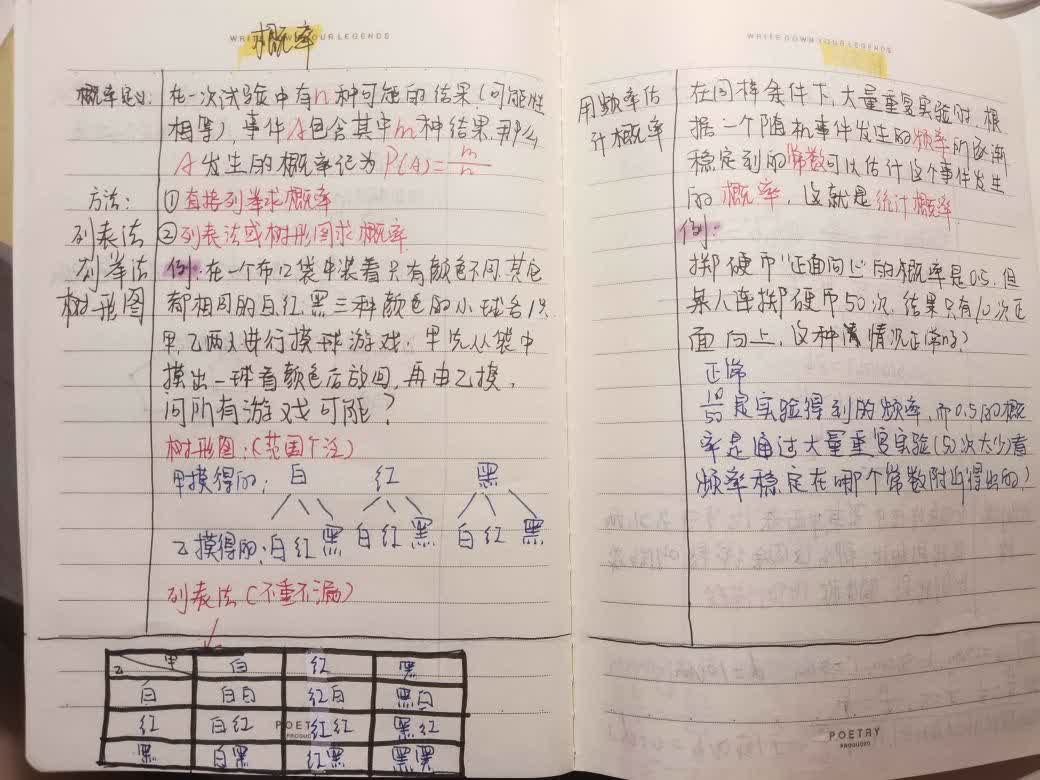 WRITE DOWN YOUR LEGENDS
概率
概率定义:
在一次试验中有n种可能的结果(可能性
相等),事件A包含其中m种结果,那么
A发生的概率记为P(A)=m/n
方法:
①直接列举求概率
列表法
②列表法或树形图求概率
列举法
例:在一个布口袋中装着只有颜色不同,其它
树形图
都相同的白,红,黑三种颜色的小球各1只
甲,乙两人进行摸球游戏:甲先从袋中
摸出一球看颜色后放回,再由乙摸,
问所有游戏可能?
树形图:
甲摸得的: 白 红 黑
乙摸得的: 白 红 黑 白 红 黑 白 红 黑
列表法(不重不漏)
乙 甲 白 红 黑
白 白白 红白 黑白
红 白红 红红 黑红
黑 白黑 红黑 黑黑
POETRY
PRODUCED
WRITE DOWN YOUR LEGENDS
用频率估
计概率
在同样条件下,大量重复实验时,根
据一个随机事件发生的频率所逐渐
稳定到的常数可以估计这个事件发生
的概率,这就是统计概率
例:
掷硬币"正面向上"的概率是0.5,但
某人连掷硬币50次,结果只有10次正
面向上,这种情况正常吗?
正常
10/50是实验得到的频率,而0.5的概
率是通过大量重复实验(50次太少)看
频率稳定在哪个常数附近得出的,
POETRY
PRODUCED